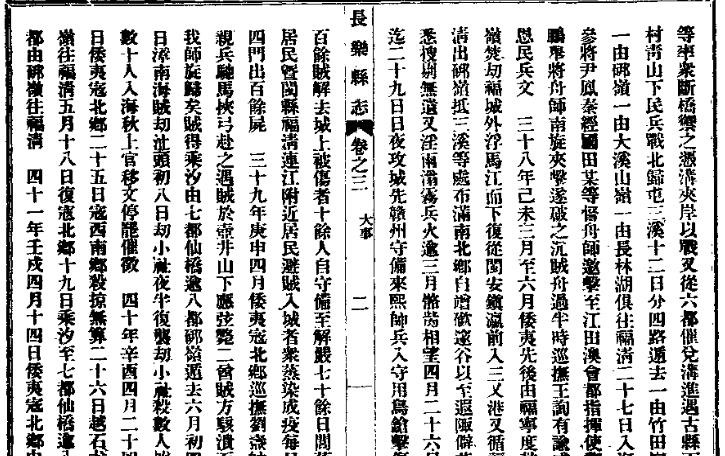 等率衆斷橋禦之憑溝夾岸以戰叉從六都催兌溝進遇古縣
村靑山下民兵戰北歸屯三溪十二日分四路遁去一由竹田
一由硋嶺一由大溪山嶺一由長林湖俱往福淸二十七日入
參將尹鳳秦經國田某等督舟師邀擊至江田澳會都指揮使
鵬舉將舟師南旋夾擊遂破之沉賊舟過半時巡撫王詢有
恩民兵文 三十八年己未三月至六月倭夷先後由福寧度
嶺焚刧福城外浮馬江而下復從閩安鎭瀛前入三叉港叉循
淸出硋嶺抵三溪等處布滿南北鄉自增窮遠谷以至遐陬僻
悉搜剔無遺叉淫雨瀰霧兵火逾三月骼胔相望四月二十六
迄二十九日日夜攻城先贛州守備來熙師兵入守用鳥鎗擊
長樂縣志 卷之三 大事 二
百餘賊解去城上被傷者十餘人自守備至解嚴七十餘日閭
居民暨閩縣福淸連江附近居民避賊入城者衆蒸染成疫每
四門出百餘屍 三十九年庚申四月倭夷寇北鄉巡撫劉燾
親兵馳馬挾弓赴之遇賊於壺井山下應弦斃二酋賊方駭潰
我師旋歸矣賊得乘汐由七都仙橋逾八都硋嶺遁去六月初
日漳南海賊刧沚頭初八日刧小祉夜半復襲刧小祉殺數人
數十人入海秋上官移文停罷催徵 四十年辛酉四月二十
日倭夷寇北鄉二十五日寇西南鄉殺掠無算二十六日越石
嶺往福淸五月十八日復寇北鄉十九日乘汐至七都仙橋逾
都由硋嶺往福淸 四十一年壬戌四月十四日倭夷寇北鄉